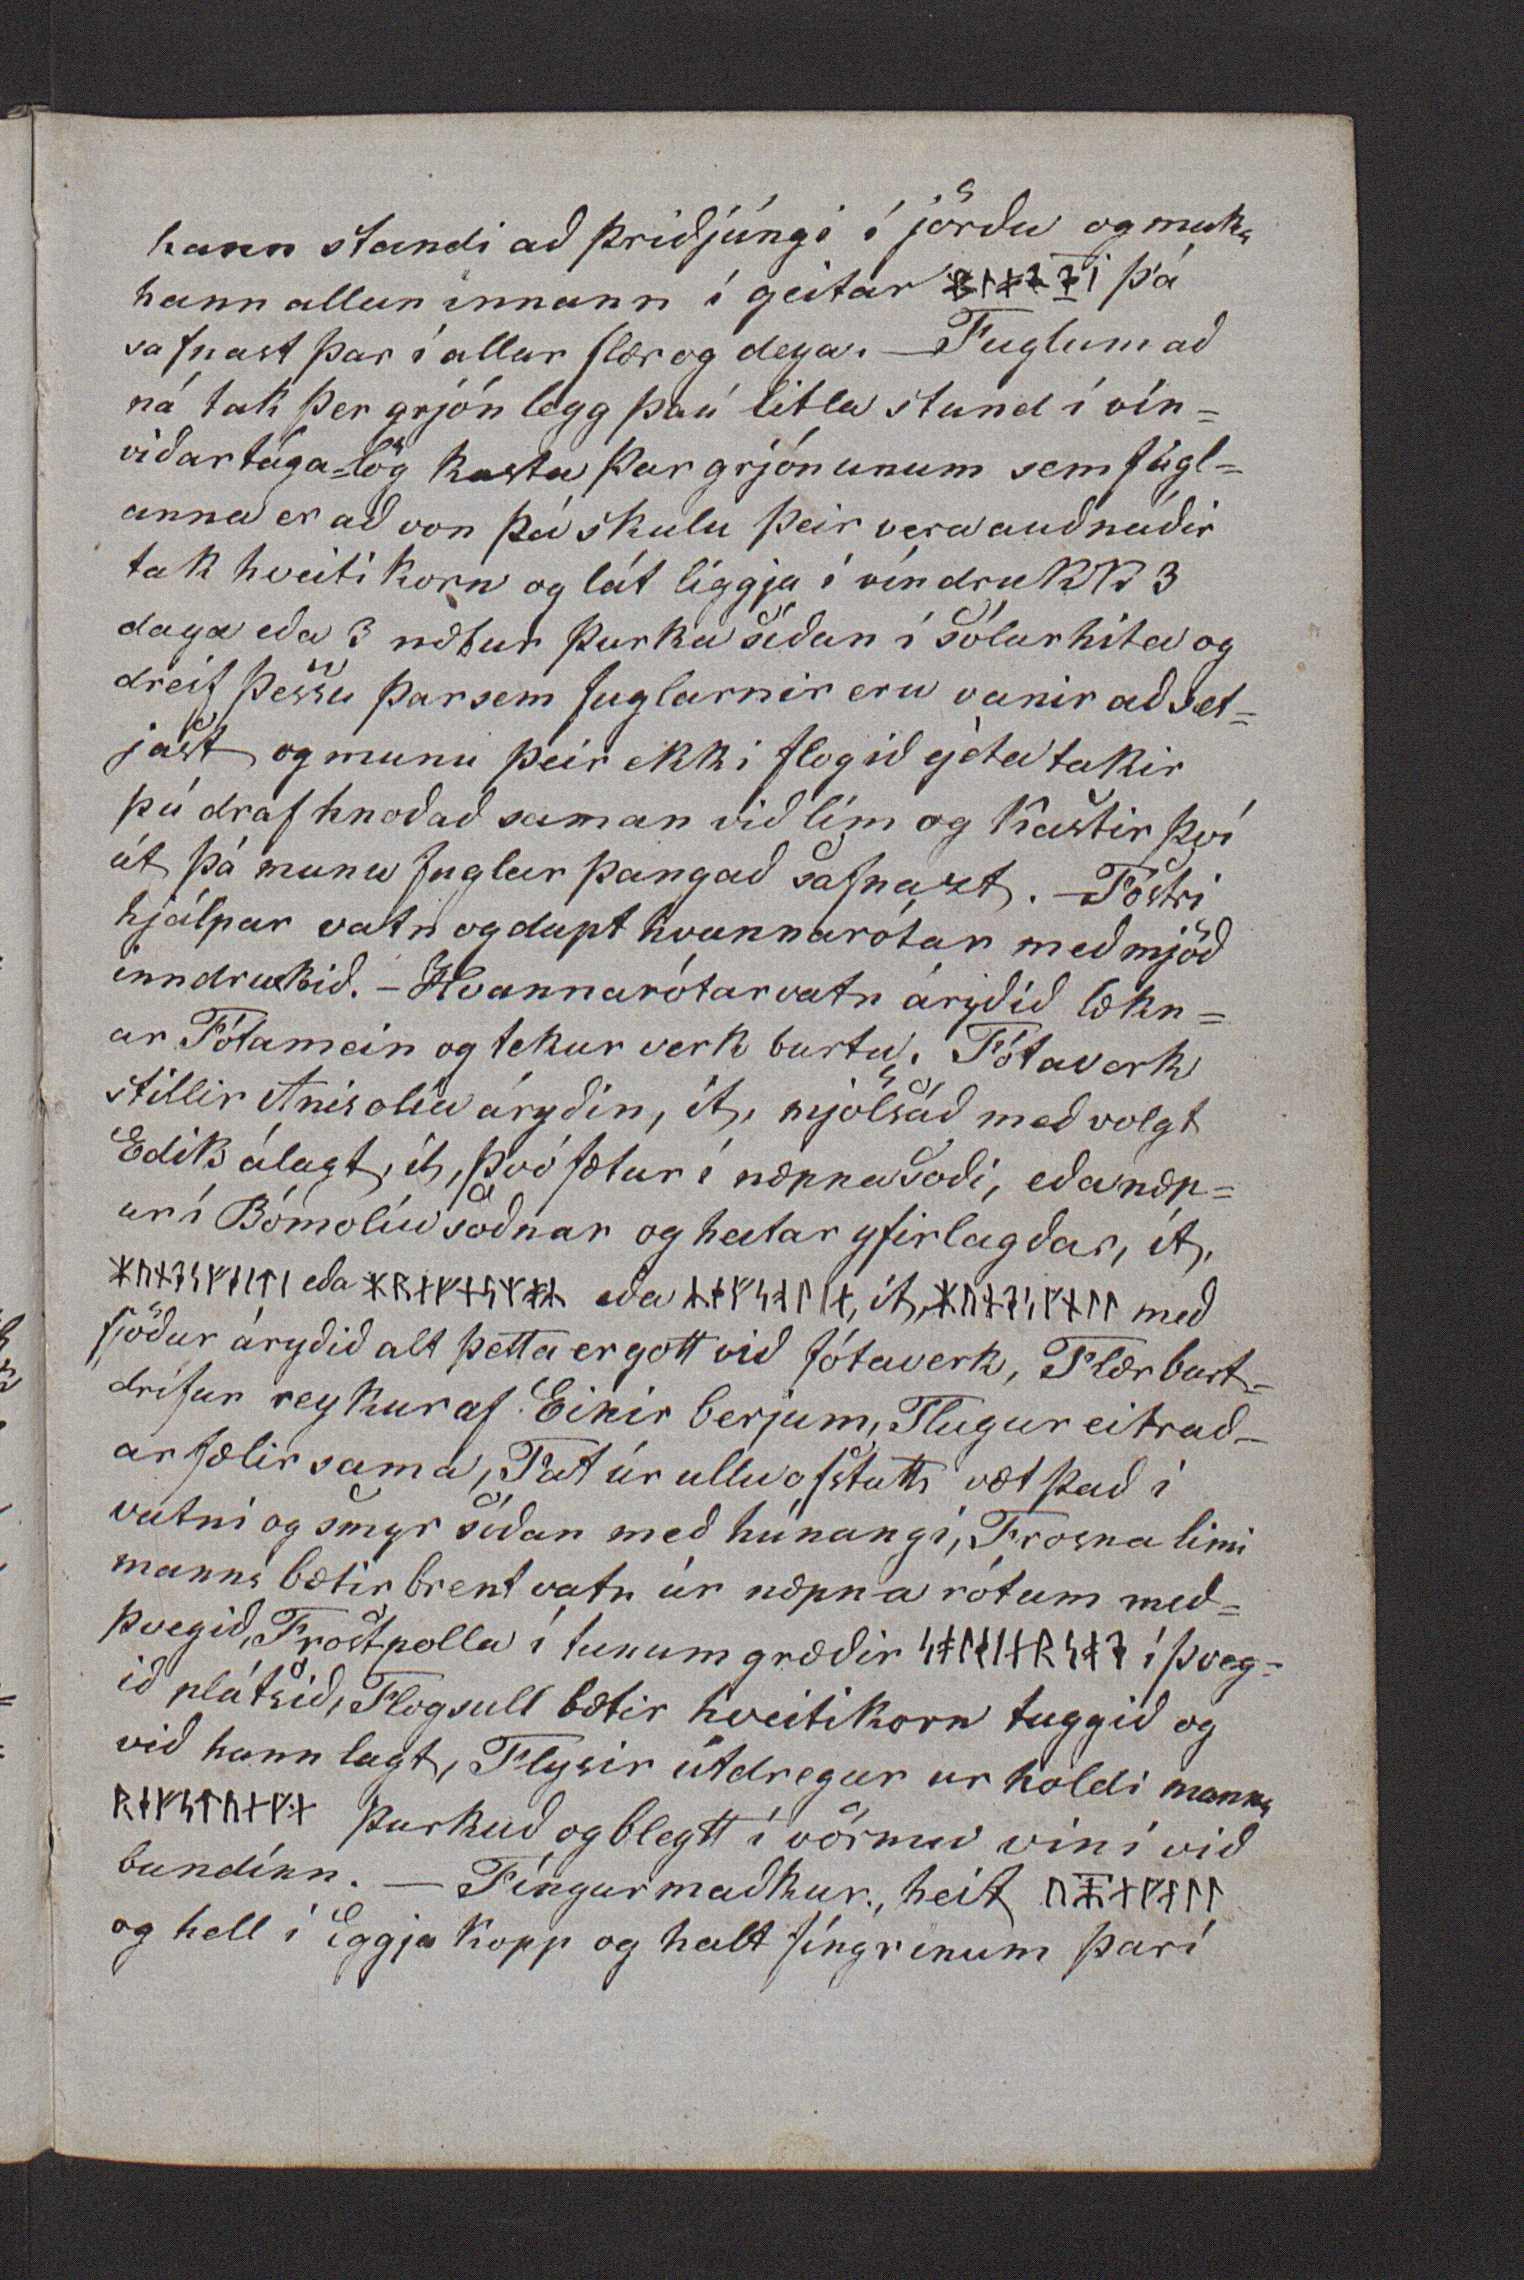 hann standi að þriðjúngi í jörðu og maka
hann allan innann í geitar ᛒᛚᚮᚦᛁ þá
safnast þar í allar flær og deya. — Fuglum að
ná tak þer grjón legg þaú litla stund í vín=
viðartága=lög kasta þar grjónunum sem fúgl=
anna er að von þá skulu þeir vera auðnáðir
tak hveiti korn og lát liggja í víndrukk 3
daga eða 3 nætur þurka síðan í sólarhita og
dreif þessu þar sem fuglarnir eru vanir að set=
jast og munu þeir ekki flogið géta takir
þú draf hnoðað saman við lím og kastir því
út þá munu fuglar þangað safnast. — Fóstri
hjálpar vatn og dupt hvannarótar með mjöð
inndrukkið. — Hvannarótarvatn áryðið lækn=
ar Fótamein og tekur verk burtu. Fótaverk
stillir Anisolía áryðin, ít, mjölsáð með volgt
Edik álagt, ít, þvó fætur í næpnasoði, eða næp=
ur í Bómolíu soðnar og heitar yfirlagðar, ít,
eða eða ít, með
sjöður áryðið alt þetta er gott við fótaverk, Flær burt=
drífur reykur af Einir berjum, Flugur eitrað=
ar fælir sama, Fat úr ullu af státt væt það í
vatni og smyr síðan með húnangi, Frosna limi
manns bætir brent vatn úr næpna rótum með=
þvegið, Frostpolla í tunum græðir í þveg=
ið plátsið, Flogsull bætir hveitikorn tuggið og
við hann lagt, Flysir útdregur ur holdi manns
þurkuð og bleytt í vörmu víni við
bundinn. — Fíngurmaðkur, heit
og hell í Eggja kopp og halt fíngrinum þarí